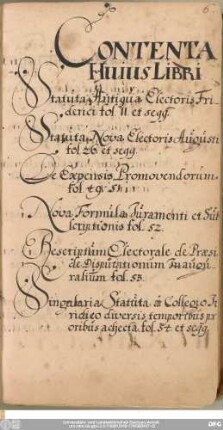 6.
CONTENTA
Huius Libri
Statuta Antiqua Electoris Fri
derici fol. 11 et seqq.
Statuta Nova Electoris Augusti
fol. 26 et seqq.
De Expensis Promovendorum
fol. 49. 51.
Nova Formula Juramenti et Sub
scriptionis fol. 52.
Rescriptum Electorale de Præsi
de Disputationum Inaugu
ralium fol. 53.
Singularia Statuta à Collegio Ju
ridico diversis temporibus pri
oribus adjecta fol. 54 et seqq.